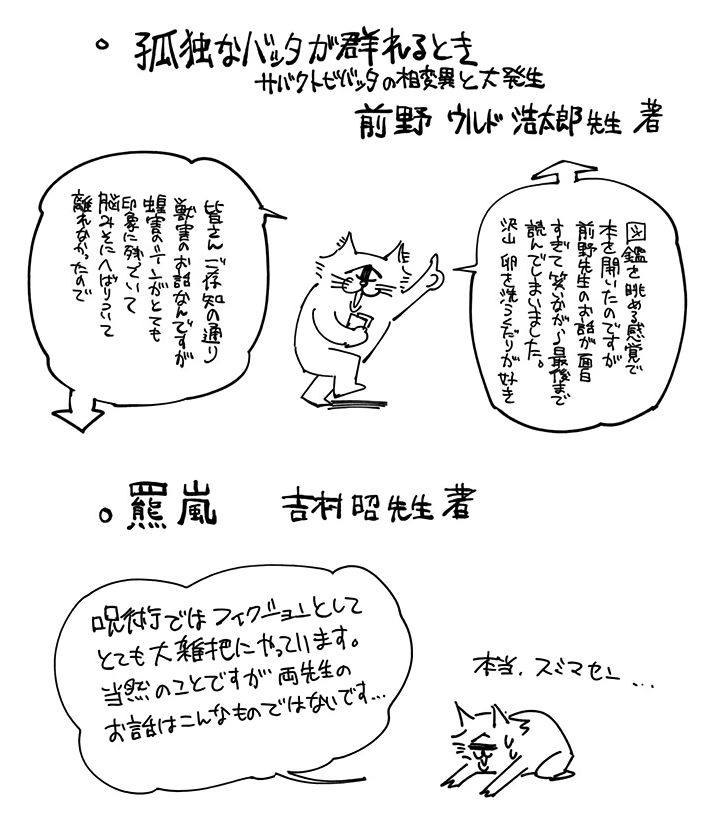 。孤独なバッタが群れるとき
サバクトビバッタの相変異と大発生
前野 ウルド 浩太郎先生 著
図鑑を眺める感覚で
本を開いたのですが
前野先生のお話が面白
すぎて笑いながら最後まで
読んでしまいました。
沢山 卵を洗うくだりが好き
皆さんご存知の通り
獣害のお話なんですが
蝗害のシーンがとても
印象に残っていて
脳みそにへばりついて
離れなかったので
。羆嵐 吉村昭先生著
呪術ではフィクションとして
とても大雑把にやっています。
当然のことですが両先生の
お話はこんなものではないです…
本当、スミマセン…